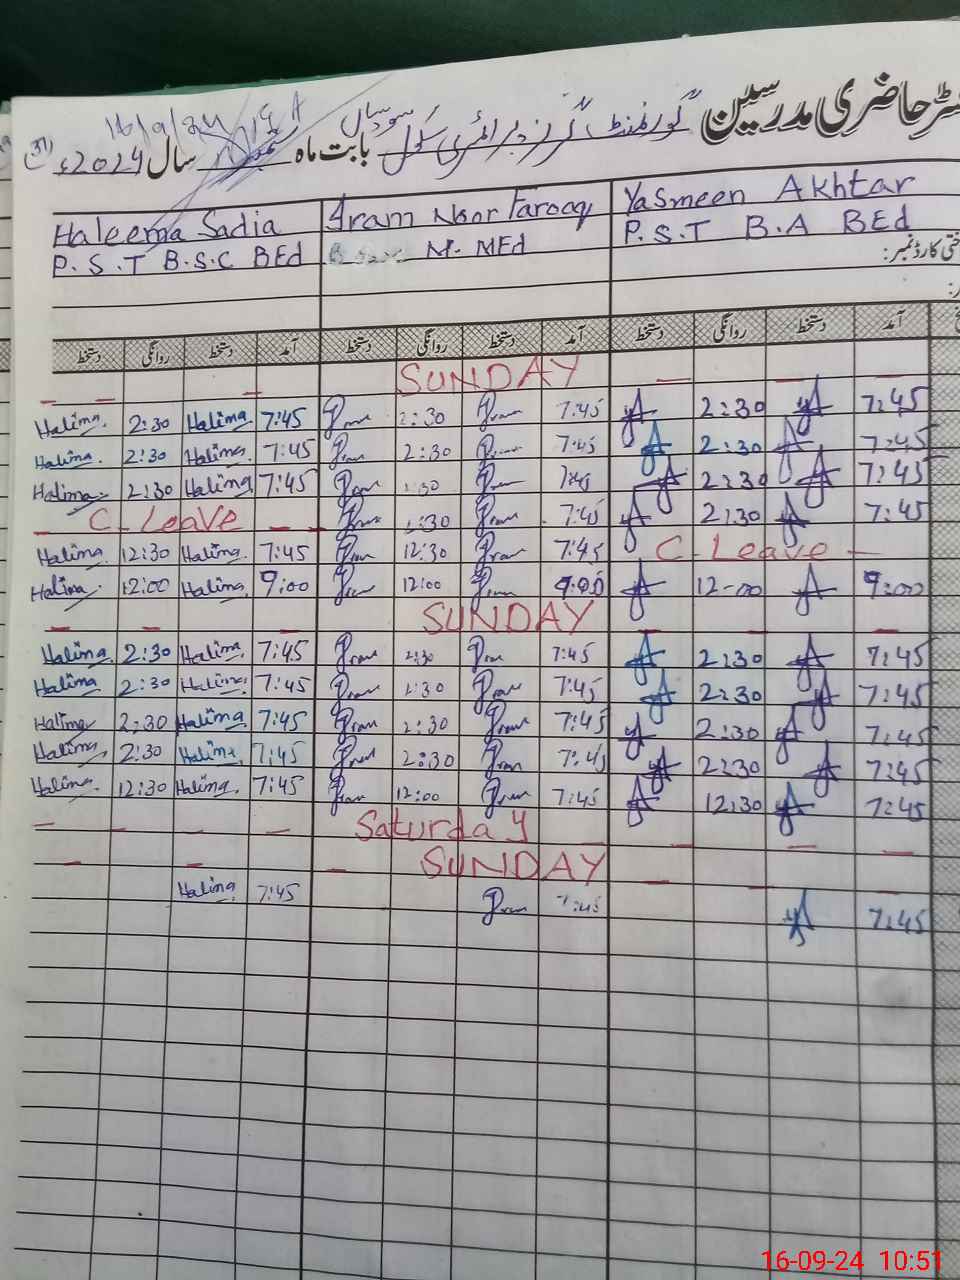 حاضری مدرسین گورنمنٹ گرلز پرائمری سکول بابت ماه سال 2024ء
16/9/24
Haleema Sadia Iram Noor Farooq Yasmeen Akhtar
P.S.T B.S.C BEd M. MEd P.S.T B.A BEd
دستخط روانگی دستخط آمد دستخط روانگی دستخط آمد دستخط روانگی دستخط آمد
SUNDAY
Halima. 2:30 Halima 7:45 Iram 2:30 Iram 7:45 2:30 7:45
Halima. 2:30 Halima. 7:45 Iram 2:30 Iram 7:45 2:30 7:45
Halima. 2:30 Halima 7:45 Iram 2:30 Iram 7:45 2:30 7:45
C-Leave Iram 2:30 Iram 7:45 2:30 7:45
Halima 12:30 Halima. 7:45 Iram 12:30 Iram 7:45 C-Leave
Halima. 12:00 Halima. 9:00 Iram 12:00 Iram 9:00 12-00 9:00
SUNDAY
Halima. 2:30 Halima. 7:45 Iram 2:30 Iram 7:45 2:30 7:45
Halima 2:30 Halima. 7:45 Iram 2:30 Iram 7:45 2:30 7:45
Halima 2:30 Halima. 7:45 Iram 2:30 Iram 7:45 2:30 7:45
Halima. 2:30 Halima 7:45 Iram 2:30 Iram 7:45 2:30 7:45
Halima. 12:30 Halima. 7:45 Iram 12:00 Iram 7:45 12:30 7:45
Saturday
SUNDAY
Halima 7:45 Iram 7:45 7:45
16-09-24 10:51